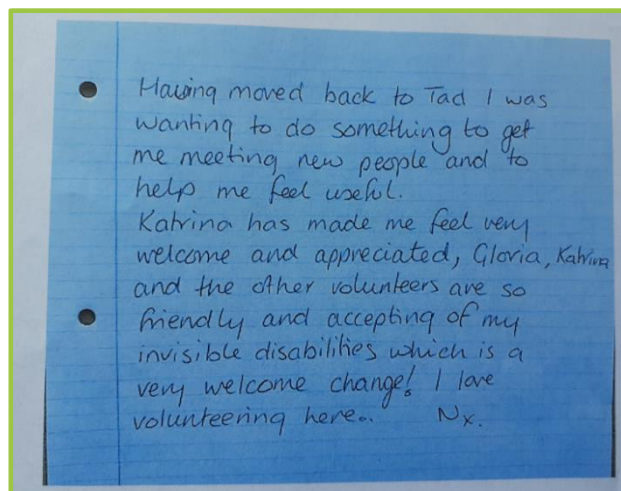 Having moved back to Tad I was
wanting to do something to get
me meeting new people and to
help me feel useful.
Katrina has made me feel very
welcome and appreciated, Gloria, Katrina
and the other volunteers are so
friendly and accepting of my
invisible disabilities which is a
very welcome change! I love
volunteering here.. Nx.